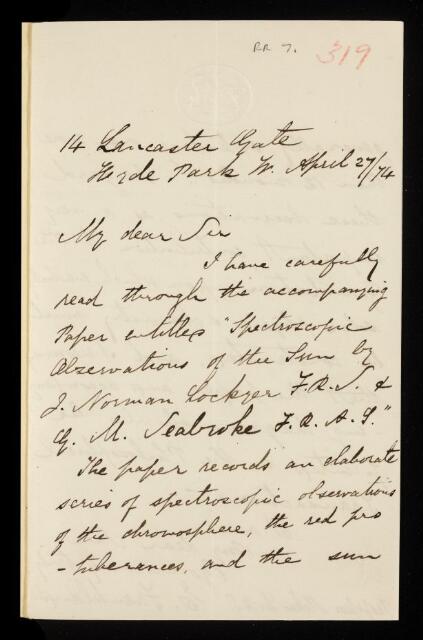 RR 7.
319
14 Lancaster Gate
Hyde Park W. April 27/74
My dear Sir
I have carefully
read through the accompanying
Paper entitled "Spectroscopic
Observations of the Sun by
J. Norman Lockyer F.R.S. &
G. M. Seabroke F.R.A.S."
The paper records an elaborate
series of spectroscopic observations
of the chromosphere, the red pro
-tuberances, and the sun